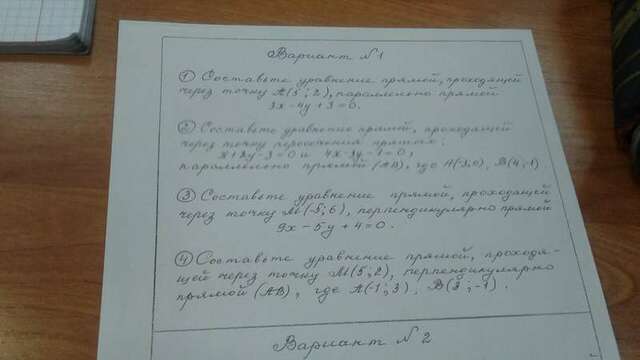 Вариант №1
① Составьте уравнение прямой, проходящей
через точку М(5; 2), параллельно прямой
3x - 4y + 3 = 0.
② Составьте уравнение прямой, проходящей
через точку пересечения прямых:
= 0 и 4x - 3y - 1 = 0,
параллельно прямой (АВ), где В(4; -1)
③ Составьте уравнение прямой, проходящей
через точку М(-5; 6), перпендикулярно прямой
9x - 5y + 4 = 0.
④ Составьте уравнение прямой, проходя-
щей через точку М(5; 2), перпендикулярно
прямой (АВ), где А(-1; 3), В(3; -1).
Вариант №2